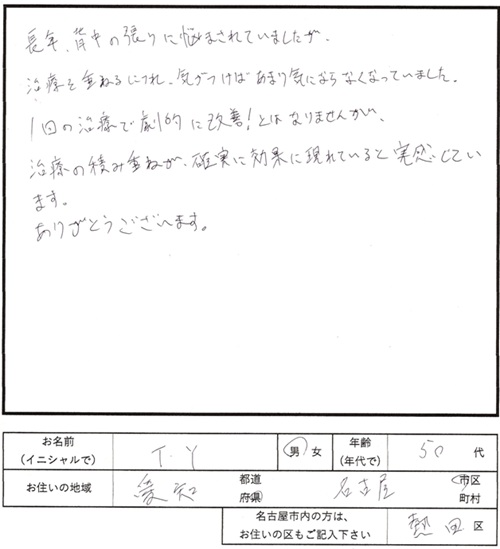 長年、背中の張りに悩まされていましたが、
治療を重ねるにつれ、気がつけばあまり気にならなくなっていました。
1回の治療で劇的に改善!とはなりませんが、
治療の積み重ねが、確実に効果に現れていると実感じてい
ます。
ありがとうございます。
お名前
(イニシャルで)
T.Y
男 女
年齢
(年代で)
50 代
お住いの地域
愛知
都道
府県
名古屋
市区
町村
名古屋市内の方は、
お住いの区もご記入下さい
熱田 区